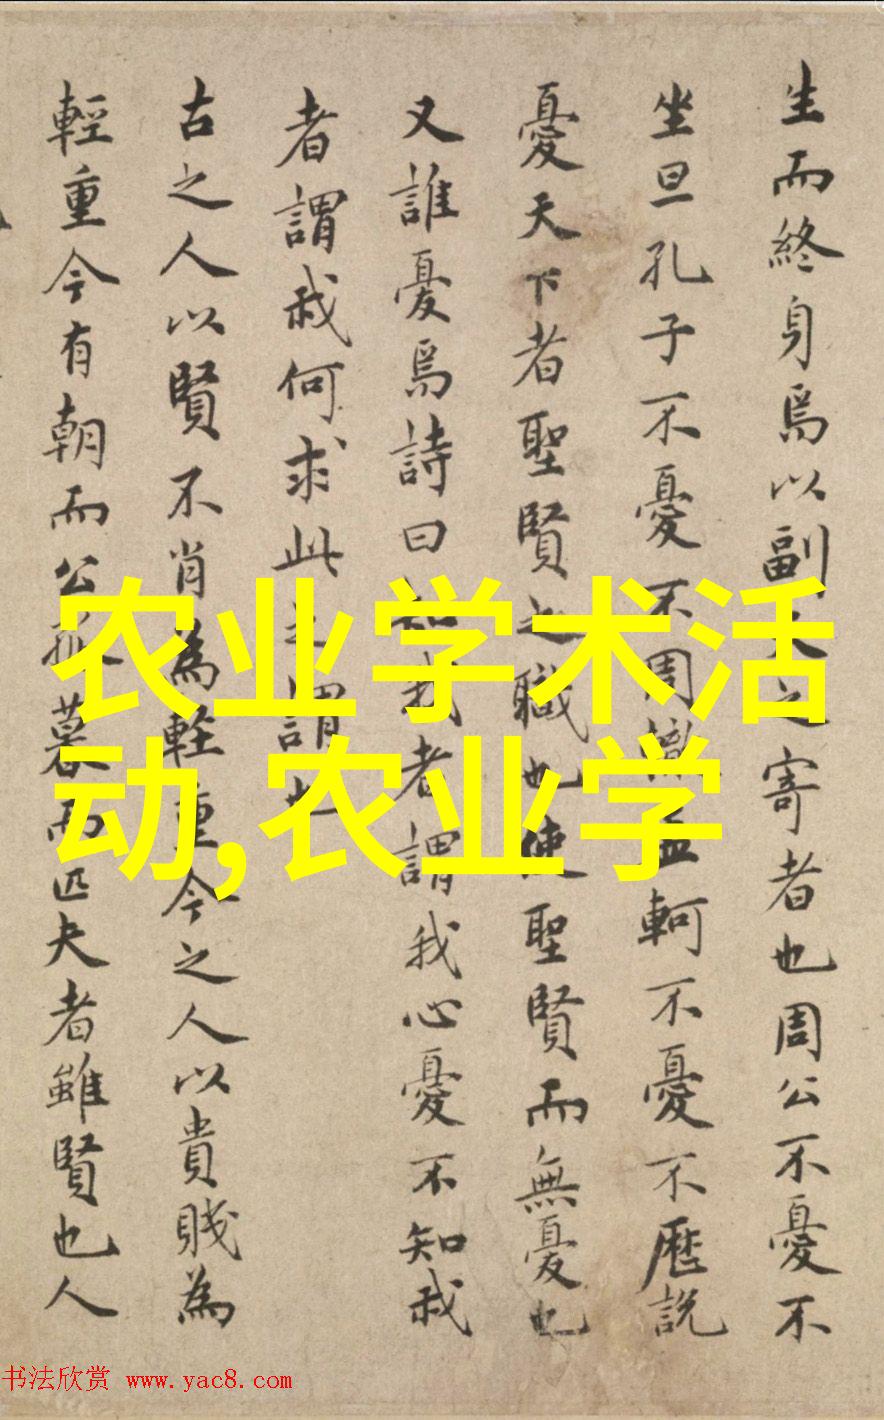 生而終身焉以副天之寄者也周公不憂不
坐旦孔子不憂不周轍孟軻不憂不歷說
憂天下者聖賢之職也使聖賢而無憂也
又誰憂焉詩曰知我者謂我心憂不知我
者謂我何求此之謂也
古之人以賢不肖為輕重今之人以貴賤為
輕重今有朝而公孤暮而匹夫者雖賢也人
农业学术活
动,农业学
书法欣赏 www.yac8.com